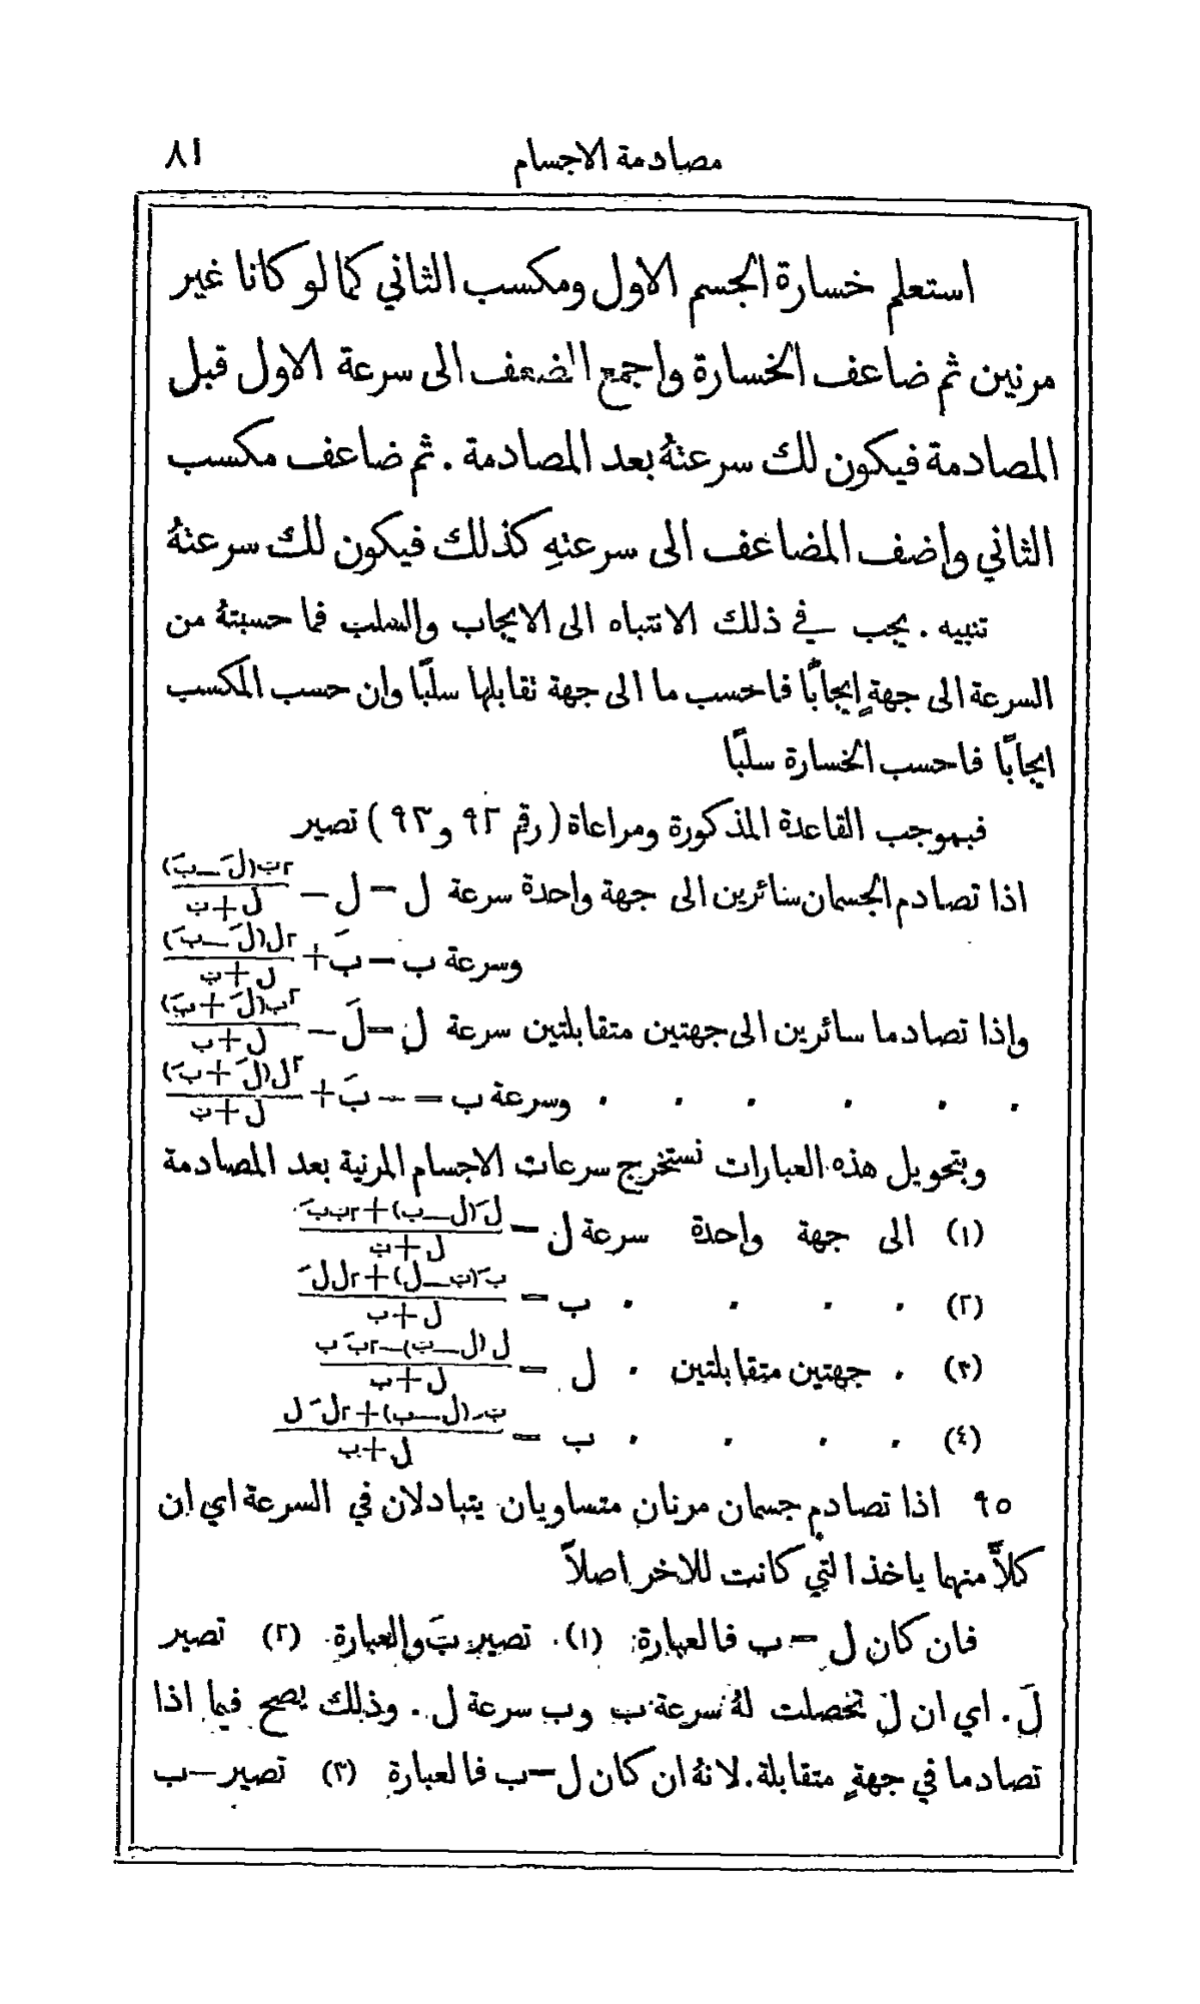 مصادمة الاجسام ٨١
استعلم خسارة الجسم الاول ومكسب الثاني كما لو كانا غير
مرنين ثم ضاعف الخسارة واجمع الضعف الى سرعة الاول قبل
المصادمة فيكون لك سرعتهُ بعد المصادمة . ثم ضاعف مكسب
الثاني واضف المضاعف الى سرعتهِ كذلك فيكون لك سرعتهُ
تنبيه . يجب في ذلك الانتباه الى الايجاب والسلب فما حسبتهُ من
السرعة الى جهةٍ ايجابًا فاحسب ما الى جهة تقابلها سلبًا وان حسب المكسب
ايجابًا فاحسب الخسارة سلبًا
فبموجب القاعدة المذكورة ومراعاة (رقم ٩٢ و ٩٣) تصير
اذا تصادم الجسمان سائرين الى جهة واحدة سرعة ل = ل − ٢ب(لَ − بَ) / ل + ب
وسرعة ب = بَ + ٢ل(لَ − بَ) / ل + ب
واذا تصادما سائرين الى جهتين متقابلتين سرعة ل = لَ − ٢ب(لَ + بَ) / ل + ب
. . . . . . وسرعة ب = − بَ + ٢ل(لَ + بَ) / ل + ب
وبتحويل هذه العبارات نستخرج سرعات الاجسام المرنية بعد المصادمة
(١) الى جهة واحدة سرعة ل = لَ(ل − ب) + ٢ب بَ / ل + ب
(٢) . . . . ب = بَ(ب − ل) + ٢ل لَ / ل + ب
(٣) . جهتين متقابلتين . ل = ل(ل − ب) − ٢بَ ب / ل + ب
(٤) . . . . ب = بَ(ل − ب) + ٢لَ ل / ل + ب
٩٥ اذا تصادم جسمان مرنان متساويان يتبادلان في السرعة اي ان
كلاًّ منهما ياخذ التي كانت للاخر اصلاً
فان كان ل = ب فالعبارة (١) . تصير بَ والعبارة (٢) تصير
لَ . اي ان ل تحصلت لهُ سرعة ب وب سرعة ل . وذلك يصح فيما اذا
تصادما في جهةٍ متقابلة . لانهُ ان كان ل = ب فالعبارة (٣) تصير − ب